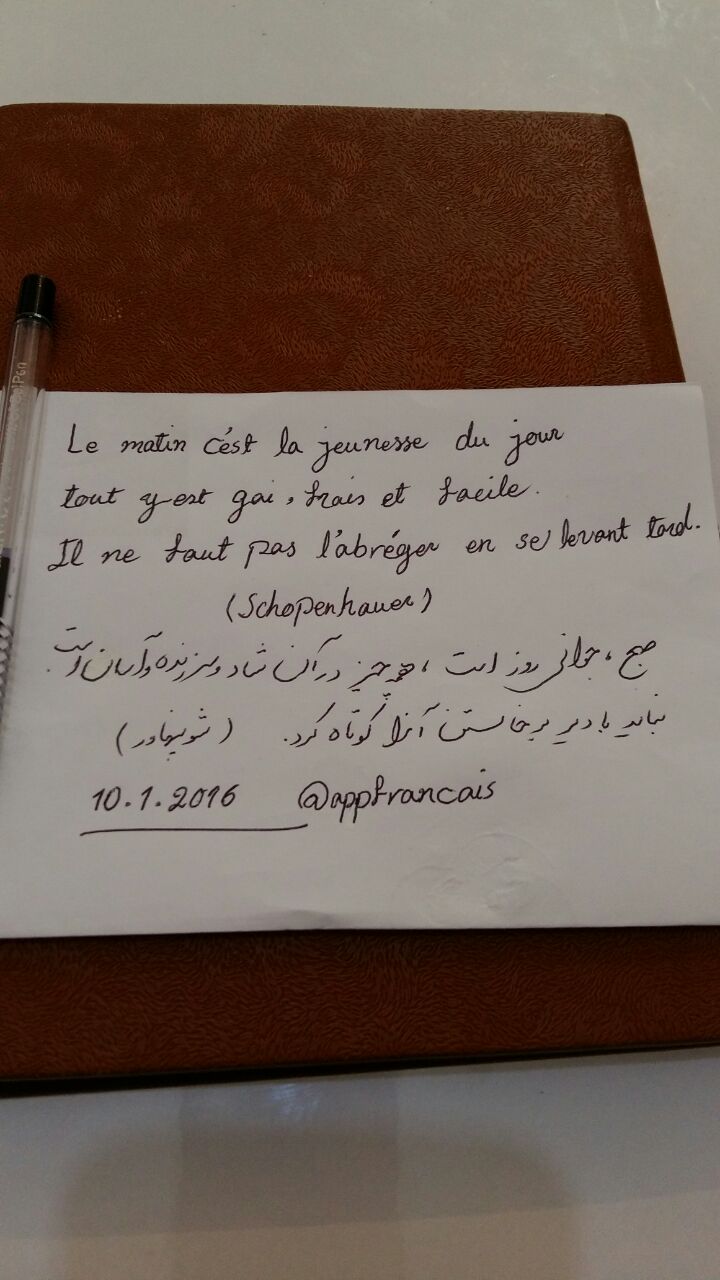 Le matin c'est la jeunesse du jour
tout y est gai, frais et facile.
Il ne faut pas l'abréger en se levant tard.
(Schopenhauer)
صبح، جوانی روز است، همه چیز در آن شاد و سرزنده و آسان است.
نباید با دیر برخاستن آنرا کوتاه کرد. (شوپنهاور)
10.1.2016 @appfrancais